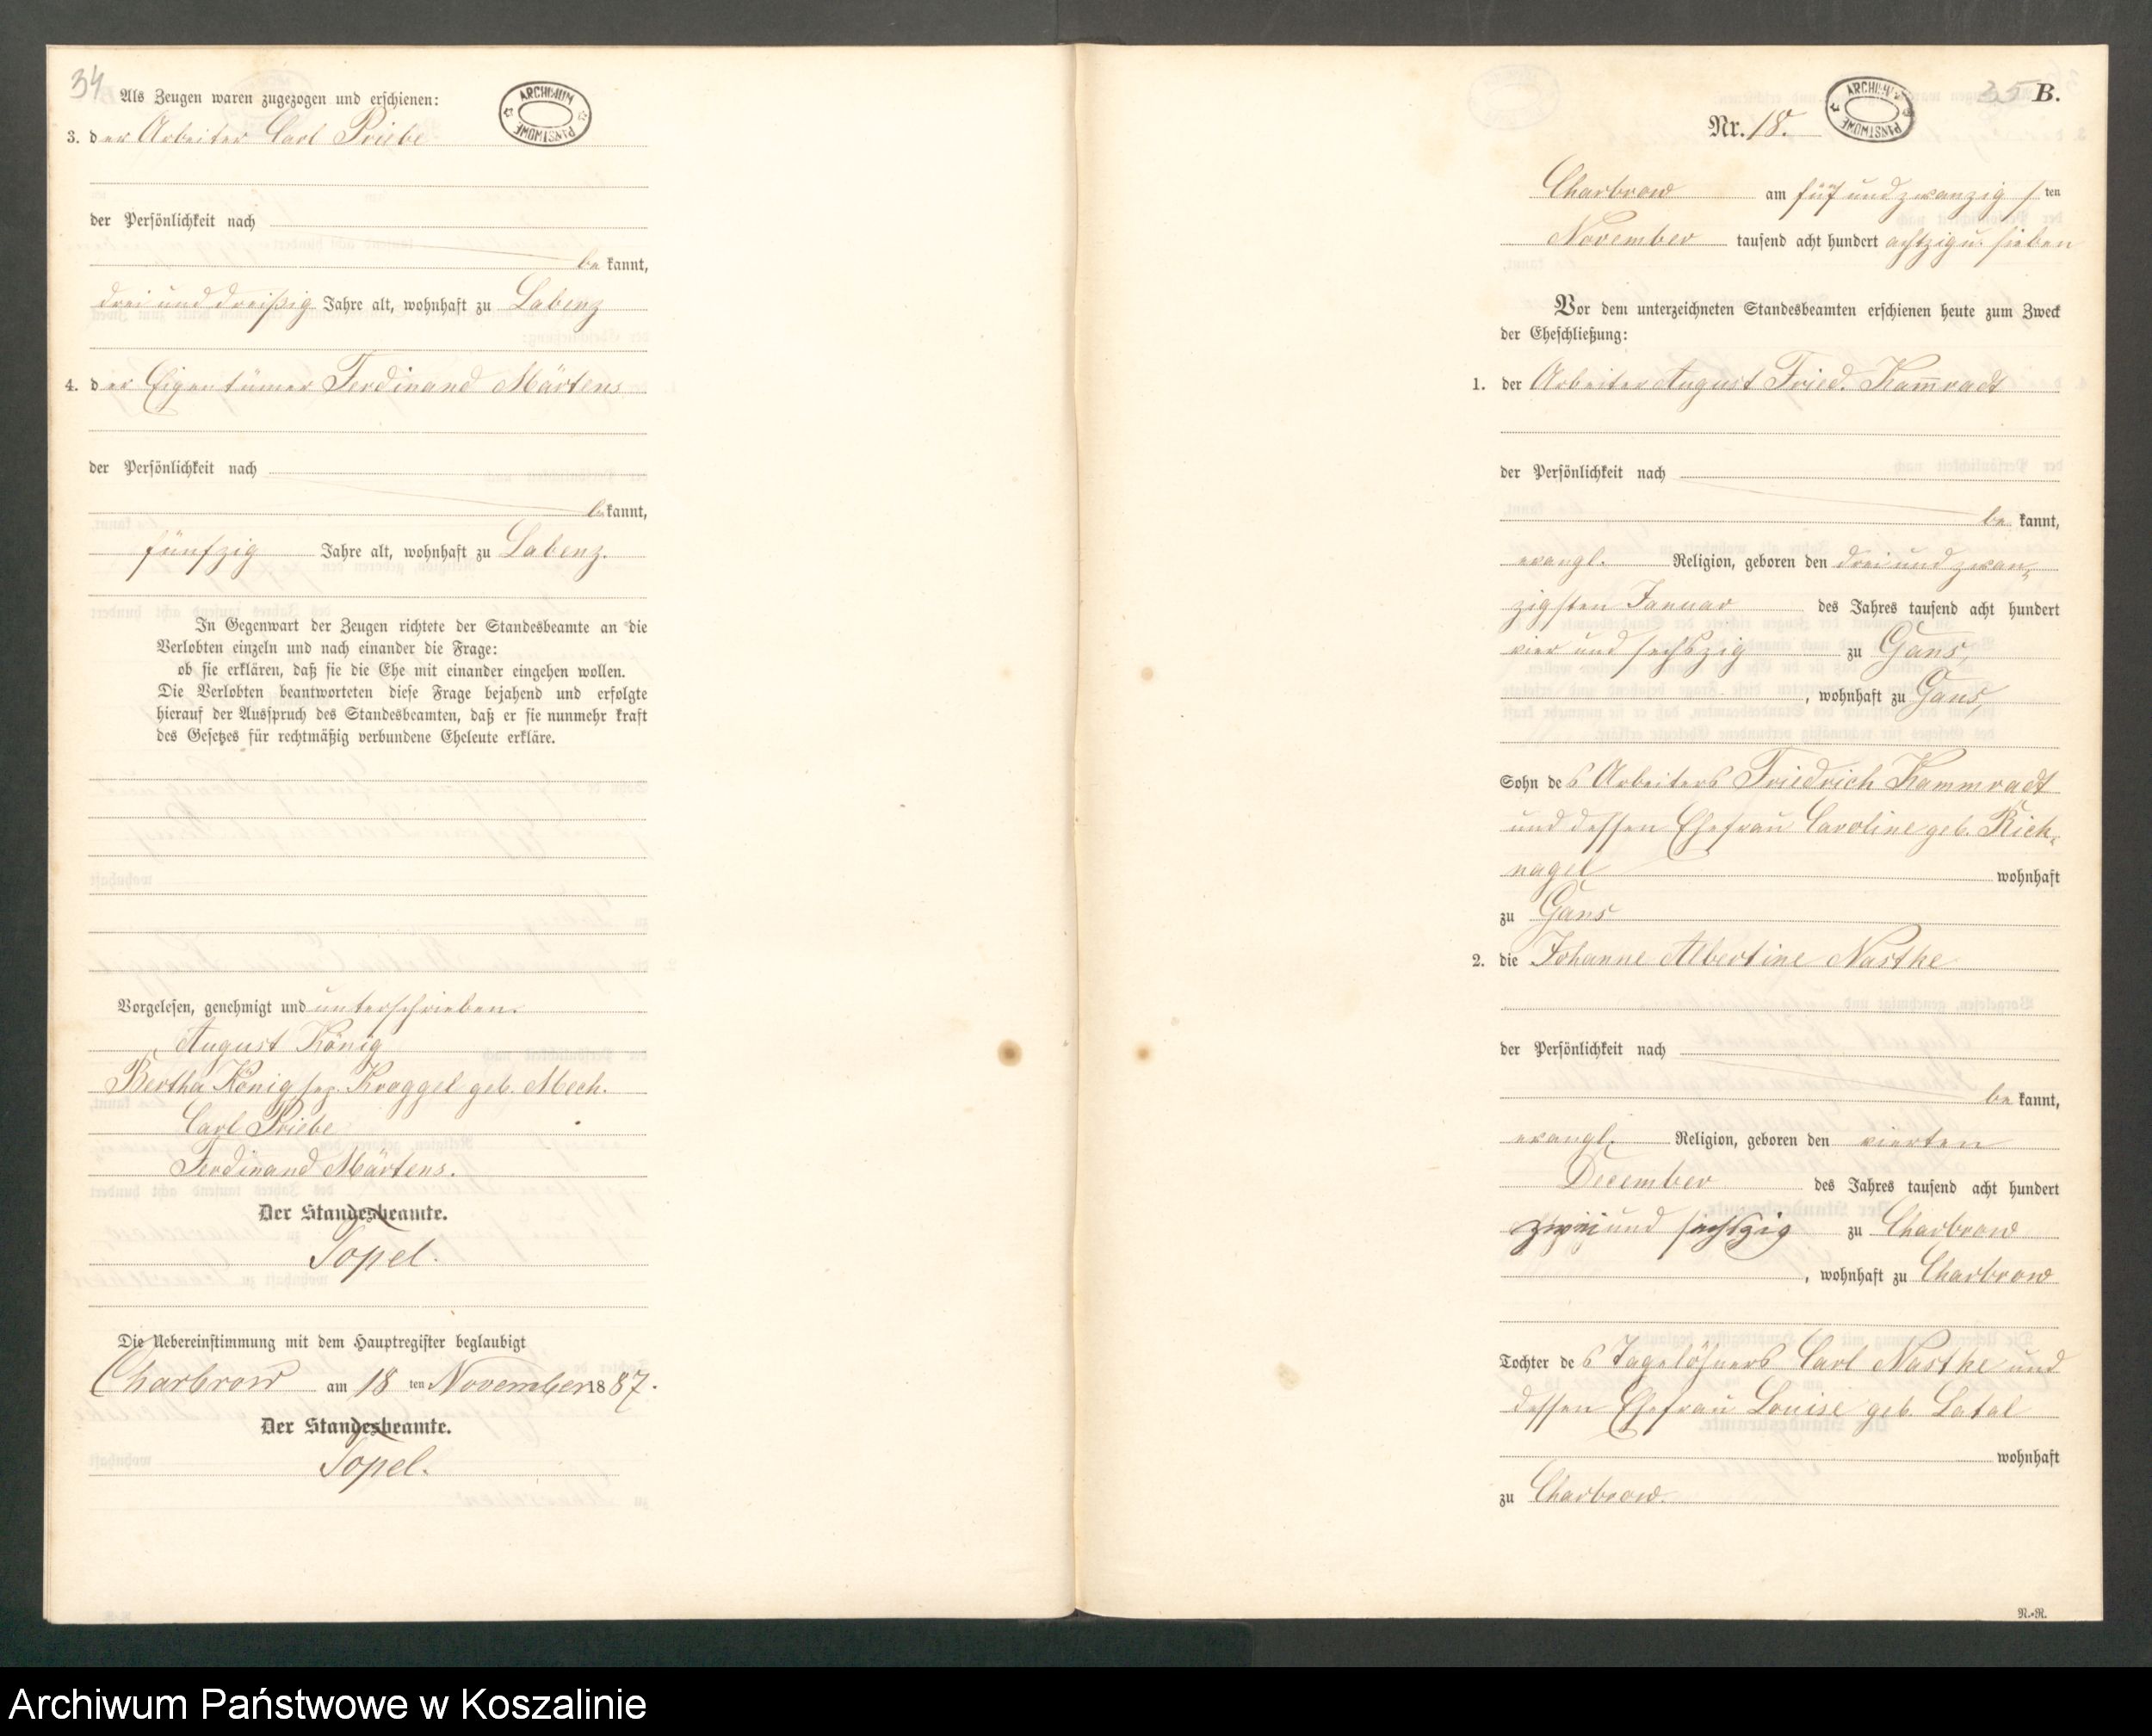 34
Als Zeugen waren zugezogen und erschienen:
ARCHIWUM PAŃSTWOWE
3. der Arbeiter Carl Priebe
der Persönlichkeit nach
bekannt,
drei und dreißig Jahre alt, wohnhaft zu Labenz
4. der Eigentümer Ferdinand Märtens
der Persönlichkeit nach
bekannt,
fünfzig Jahre alt, wohnhaft zu Labenz.
In Gegenwart der Zeugen richtete der Standesbeamte an die
Verlobten einzeln und nach einander die Frage:
ob sie erklären, daß sie die Ehe mit einander eingehen wollen.
Die Verlobten beantworteten diese Frage bejahend und erfolgte
hierauf der Ausspruch des Standesbeamten, daß er sie nunmehr kraft
des Gesetzes für rechtmäßig verbundene Eheleute erkläre.
Vorgelesen, genehmigt und unterschrieben.
August König
Bertha König geb. Mech.
Carl Priebe
Ferdinand Märtens.
Der Standesbeamte.
Topel.
Die Uebereinstimmung mit dem Hauptregister beglaubigt
Charbrow am 18 ten November 1887.
Der Standesbeamte.
Topel.
35 B.
Nr. 18.
ARCHIWUM PAŃSTWOWE
Charbrow am füf und zwanzig ten
November tausend acht hundert achtzig u. sieben
Vor dem unterzeichneten Standesbeamten erschienen heute zum Zweck
der Eheschließung:
1. der Arbeiter August Fried. Kam̅radt
der Persönlichkeit nach
bekannt,
evangl. Religion, geboren den drei und zwan-
zigsten Januar des Jahres tausend acht hundert
vier und sechszig zu Gans,
, wohnhaft zu Gans,
Sohn des Arbeiters Friedrich Kammradt
und dessen Ehefrau Caroline geb. Rick-
nagel wohnhaft
zu Gans
2. die Johanne Albertine Nasthe
der Persönlichkeit nach
bekannt,
evangl. Religion, geboren den vierten
December des Jahres tausend acht hundert
zwei und sechszig zu Charbrow
, wohnhaft zu Charbrow
Tochter des Tagelöhners Carl Nasthe und
dessen Ehefrau Louise geb. Latal
wohnhaft
zu Charbrow.
N.-N.
Archiwum Państwowe w Koszalinie